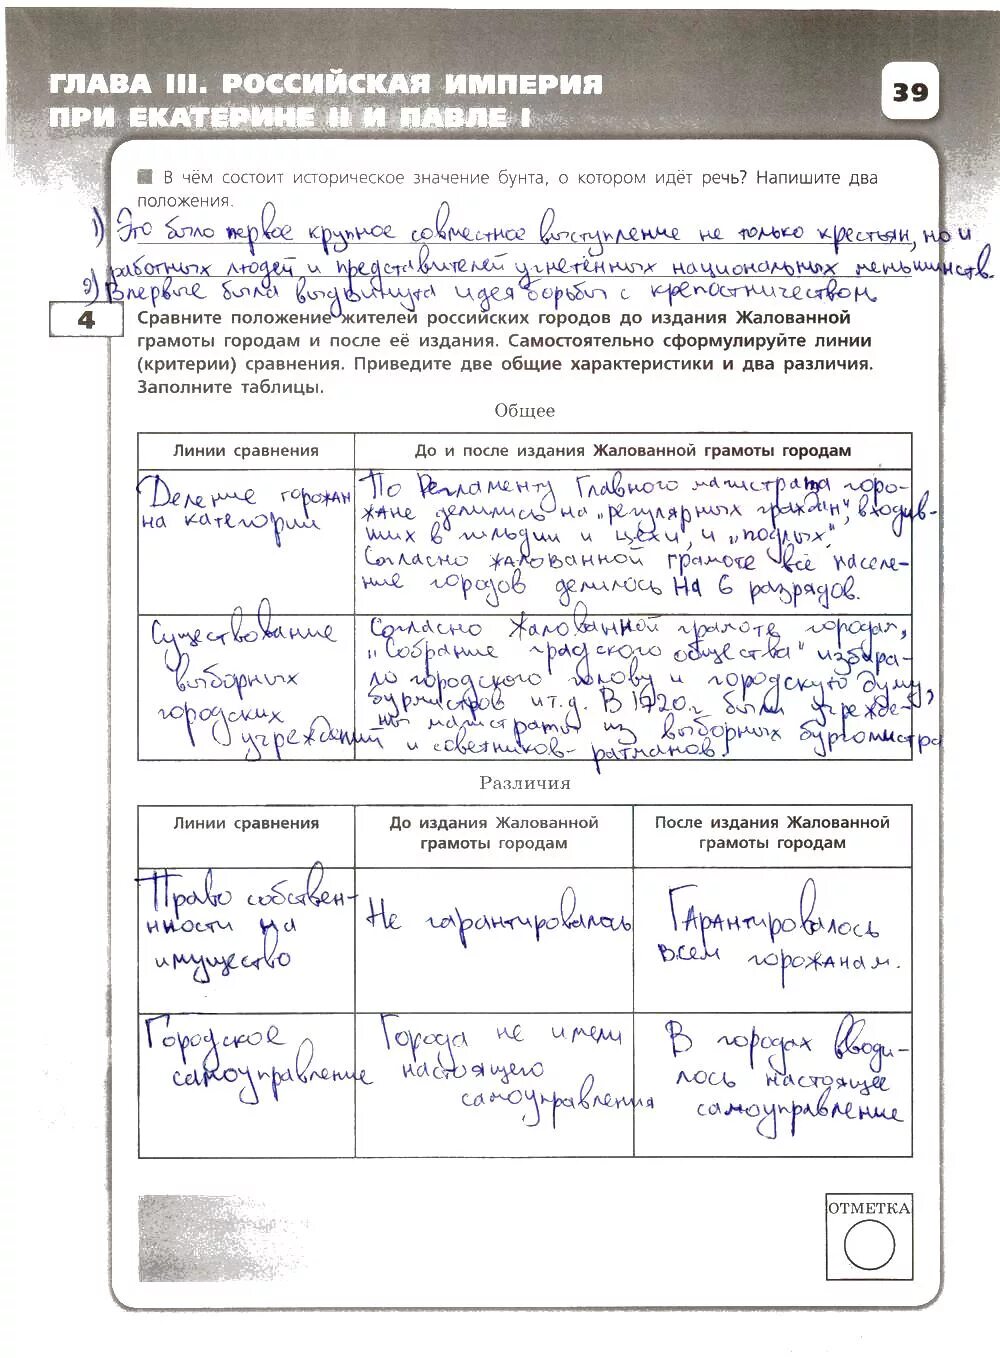 ГЛАВА III. РОССИЙСКАЯ ИМПЕРИЯ
ПРИ ЕКАТЕРИНЕ II И ПАВЛЕ I
39
В чём состоит историческое значение бунта, о котором идёт речь? Напишите два
положения.
1) Это было первое крупное совместное выступление не только крестьян, но и
работных людей и представителей угнетённых национальных меньшинств.
2) Впервые была выдвинута идея борьбы с крепостничеством
4
Сравните положение жителей российских городов до издания Жалованной
грамоты городам и после её издания. Самостоятельно сформулируйте линии
(критерии) сравнения. Приведите две общие характеристики и два различия.
Заполните таблицы.
Общее
Линии сравнения
До и после издания Жалованной грамоты городам
Деление горожан
на категории
По Регламенту Главного магистрата горо-
жане делились на „регулярных граждан", входив-
ших в гильдии и цехи, и „подлых".
Согласно жалованной грамоте всё населе-
ние городов делилось на 6 разрядов.
Существование
выборных
городских
учреждений
Согласно Жалованной грамоте городам,
„Собрание градского общества" избира-
ло городского голову и городскую думу,
бурмистров и т.д. В 1720 г. были учрежде-
ны магистраты из выборных бургомистра
и советников-ратманов.
Различия
Линии сравнения
До издания Жалованной
грамоты городам
После издания Жалованной
грамоты городам
Право собствен-
нности на
имущество
Не гарантировалось
Гарантировалось
всем горожанам.
Городское
самоуправление
Города не имели
настоящего
самоуправления
В городах вводи-
лось настоящее
самоуправление
ОТМЕТКА